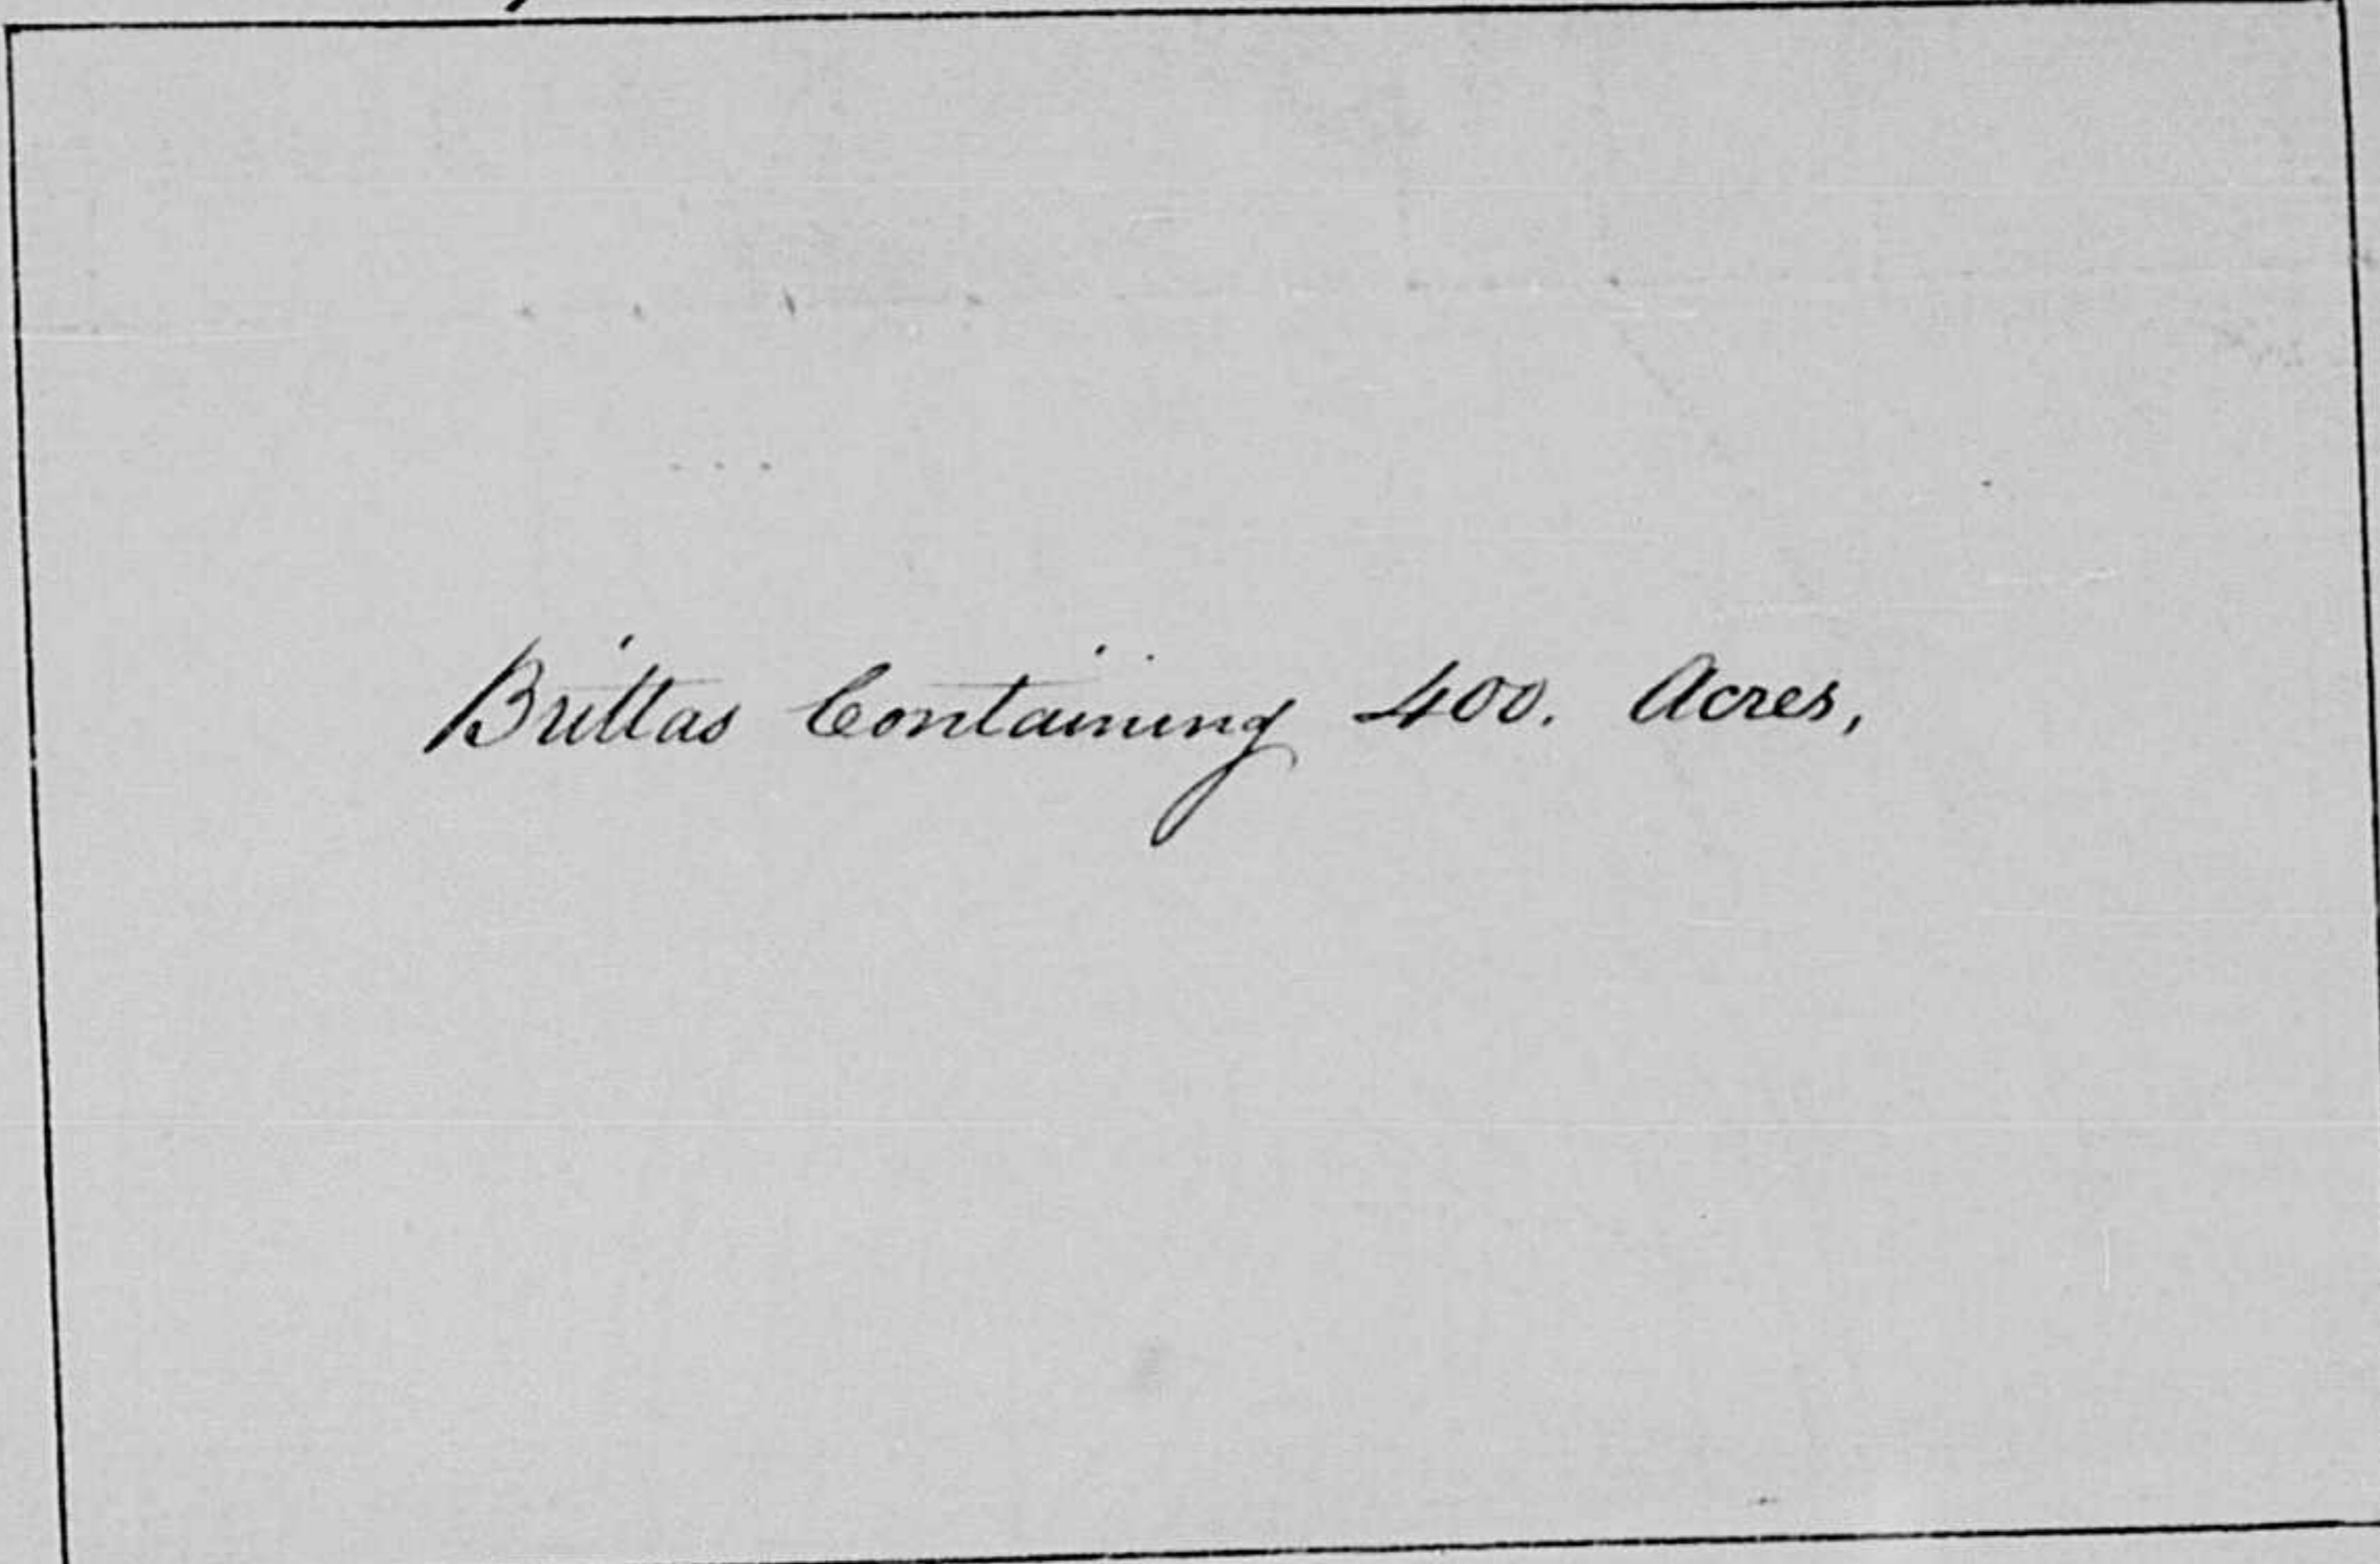 Brittas Containing 400. Acres,